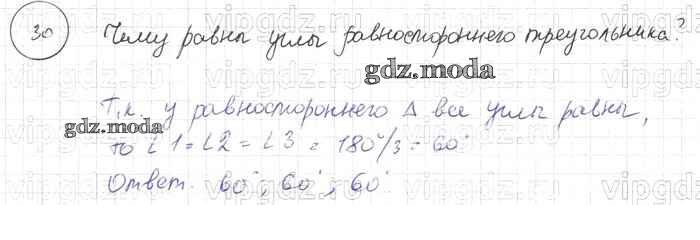 30 Чему равны углы равностороннего треугольника?
gdz.moda
Т.к. у равностороннего Δ все углы равны,
gdz.moda
то ∠1 = ∠2 = ∠3 = 180°/3 = 60°
Ответ. 60°, 60°, 60°
vipgdz.ru